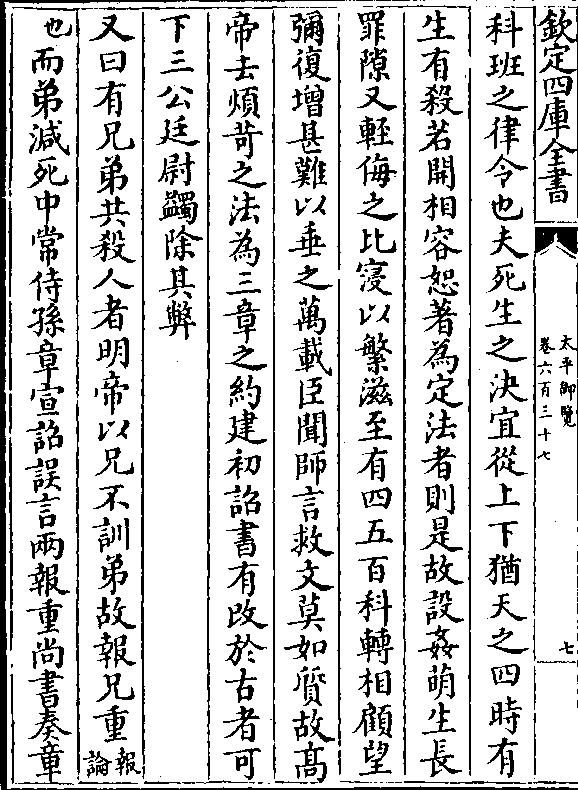 欽定四庫全書
太平御覽
卷六百三十七
七
科班之律令也夫死生之決宜從上下猶天之四時有
生有殺若開相容恕著為定法者則是故設姦萌生長
罪隙又輕侮之比寖以繁滋至有四五百科轉相顧望
彌復增甚難以垂之萬載臣聞師言救文莫如質故髙
帝去煩苛之法為三章之約建初詔書有改於古者可
下三公廷尉蠲除其弊
又曰有兄弟共殺人者明帝以兄不訓弟故報兄重報論
也而弟減死中常侍孫章宣詔誤言兩報重尚書奏章